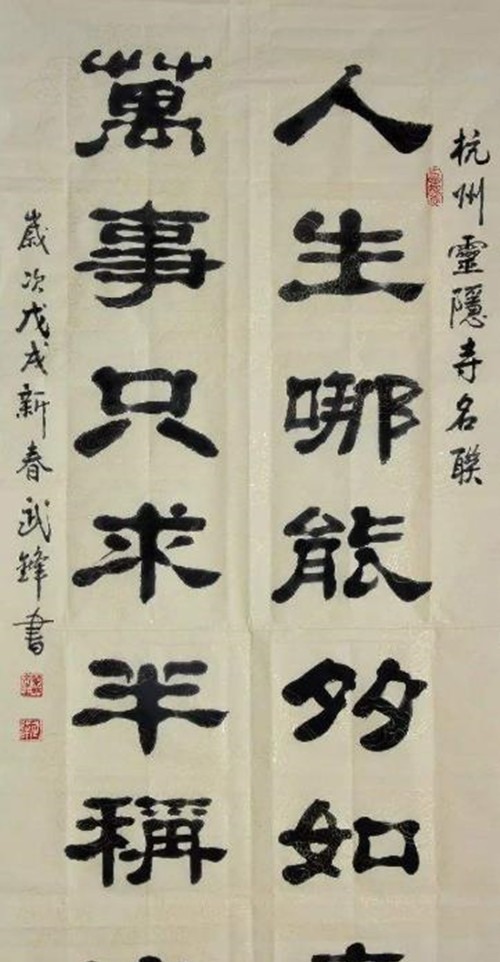 杭州靈隱寺名聯
人生哪能多如
萬事只求半稱
歲次戊戌新春武鋒書